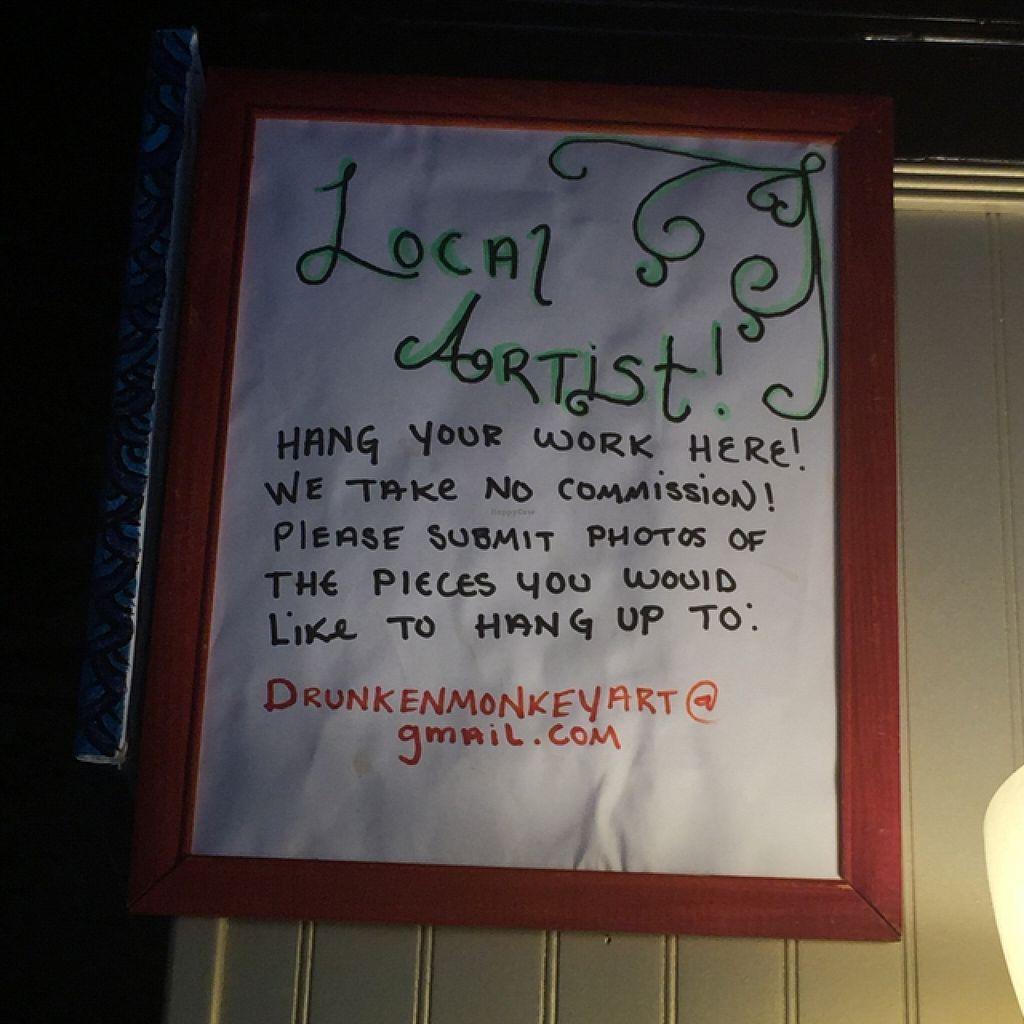 Local
Artist!
HANG YOUR WORK HERE!
WE TAKE NO COMMISSION!
PLEASE SUBMIT PHOTOS OF
THE PIECES YOU WOULD
LIKE TO HANG UP TO:
DRUNKENMONKEYART@
gmail.com
HappyCow